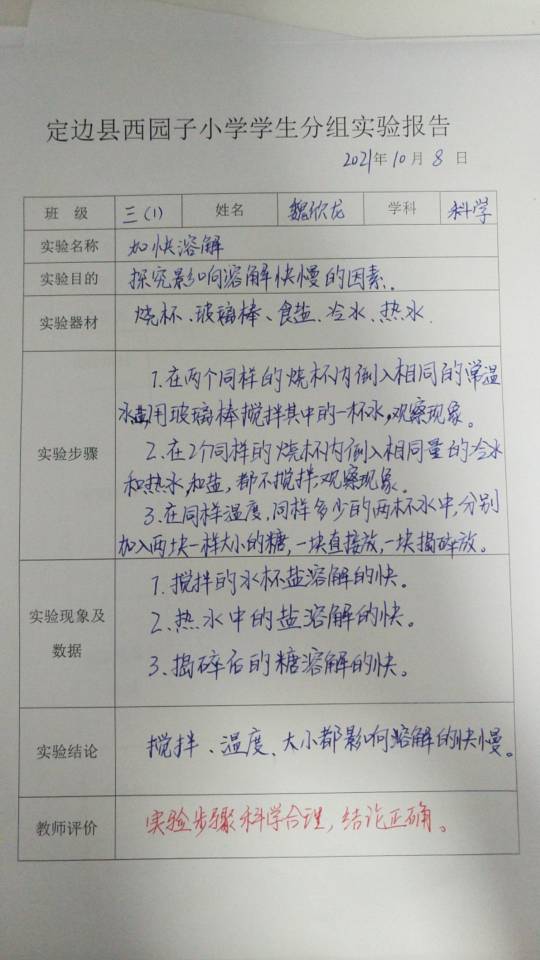 定边县西园子小学学生分组实验报告
2021年10月8日
班 级 三(1) 姓名 魏欣龙 学科 科学
实验名称 加快溶解
实验目的 探究影响溶解快慢的因素。
实验器材 烧杯、玻璃棒、食盐、冷水、热水
实验步骤
1.在两个同样的烧杯内倒入相同的常温
水盐用玻璃棒搅拌其中的一杯水,观察现象。
2.在2个同样的烧杯内倒入相同量的冷水
和热水,和盐,都不搅拌,观察现象。
3.在同样温度,同样多少的两杯水中,分别
加入两块一样大小的糖,一块直接放,一块捣碎放。
实验现象及
数据
1.搅拌的水杯盐溶解的快。
2.热水中的盐溶解的快。
3.捣碎后的糖溶解的快。
实验结论 搅拌、温度、大小都影响溶解的快慢。
教师评价 实验步骤科学合理,结论正确。